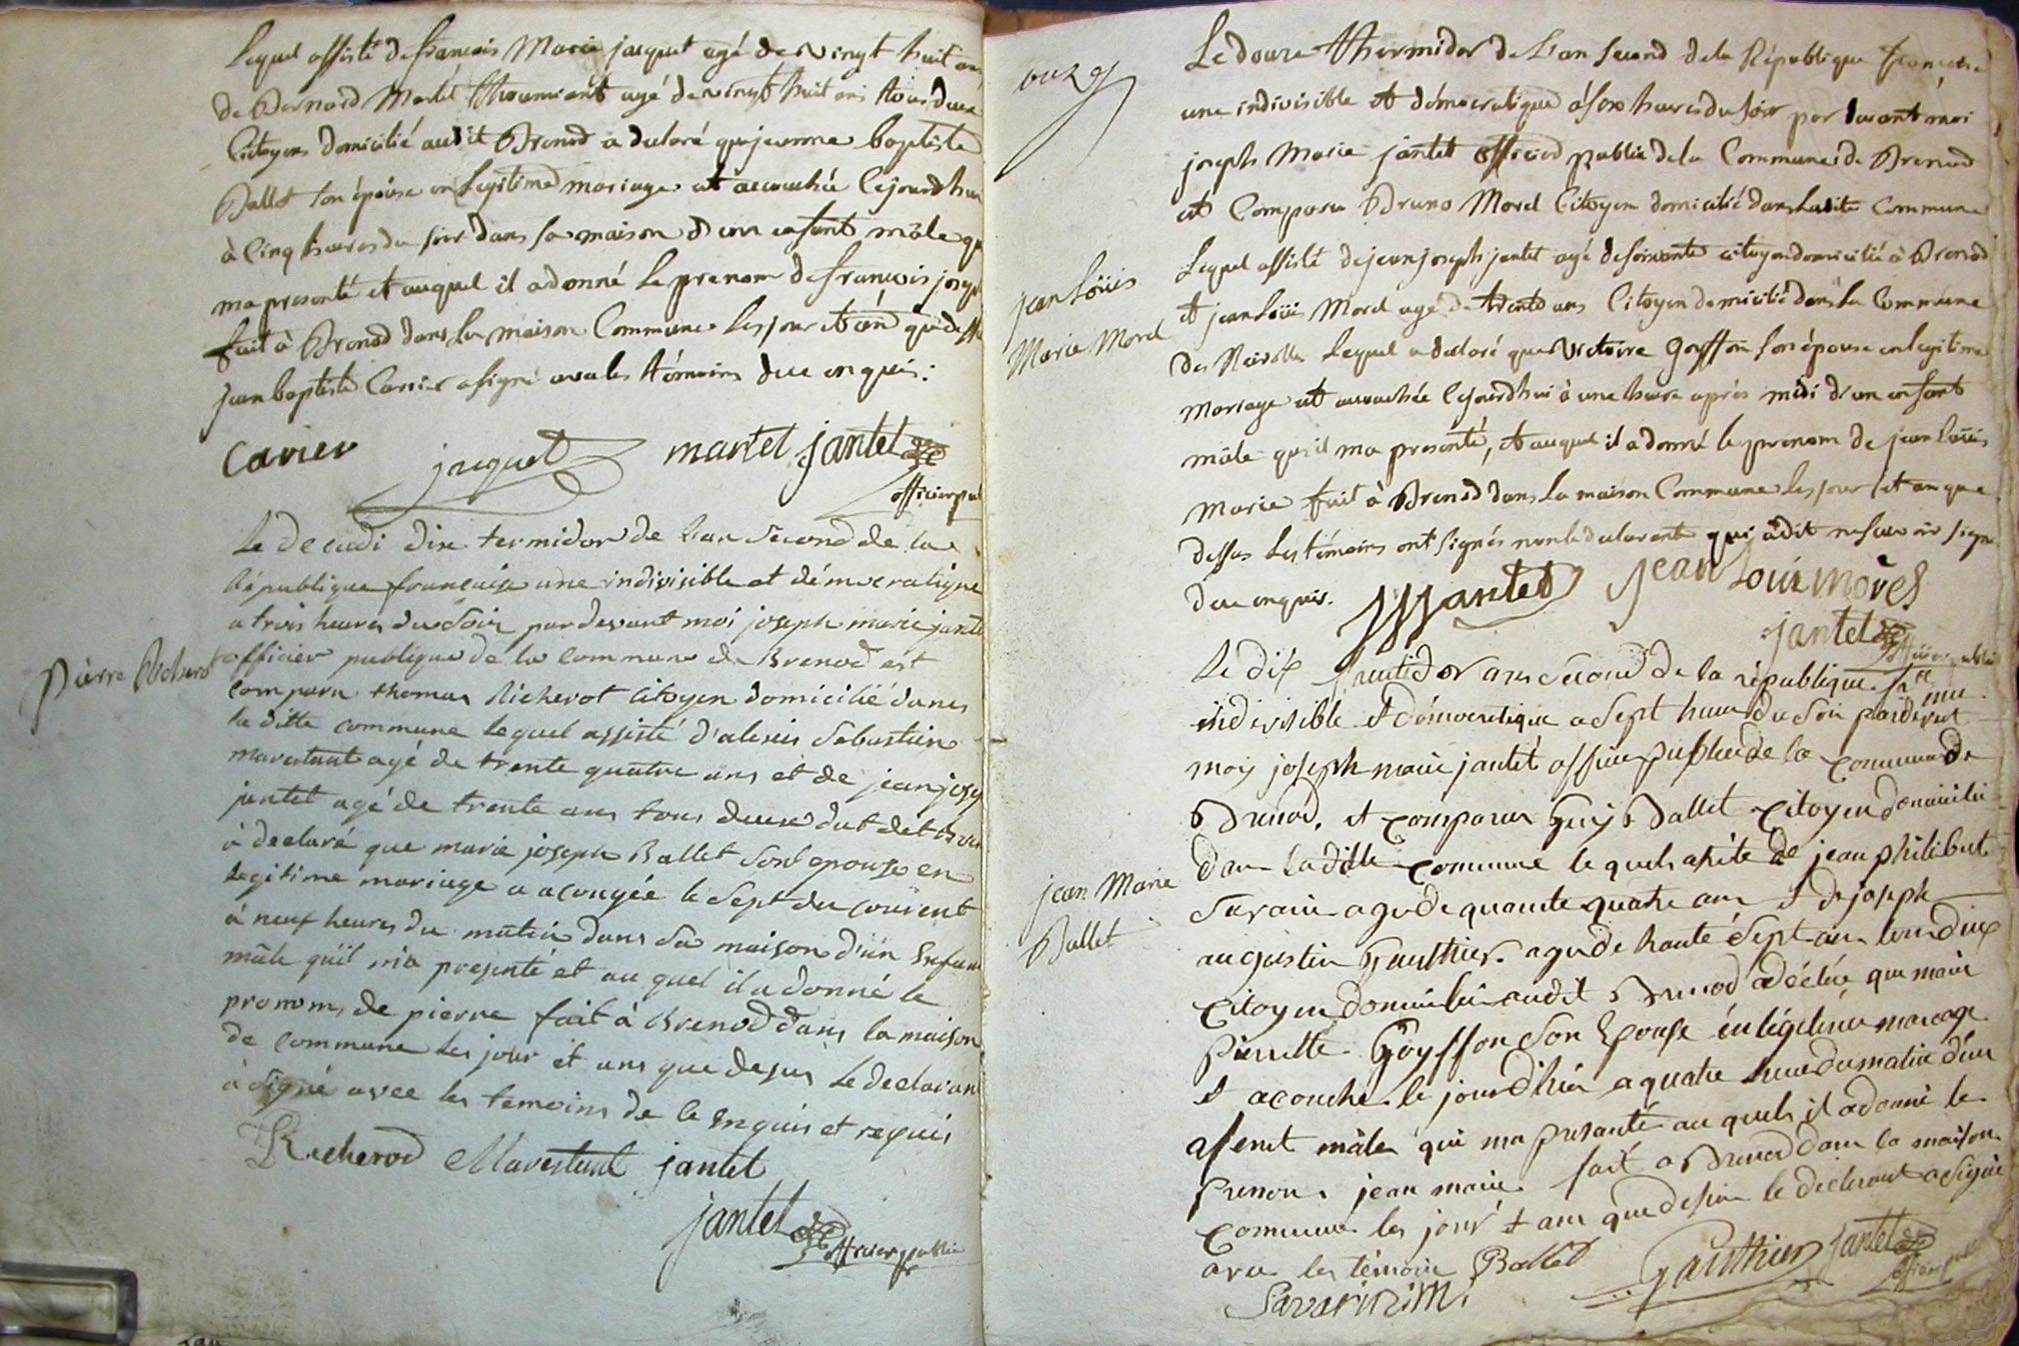 Lequel assisté de francois Marie jacquet agé de vingt huit ans
de Bernard Martet agé de vingt huit ans tous deux
Citoyens domicilié audit Brenod a declaré que jeanne baptiste
Ballet son épouse en legitime mariage est accouchée cejourdhui
à Cinq heures du soir dans sa maison d'un enfant mâle qu
ma presenté et auquel il a donné le prenom de francois joseph
fait à Brenod dans la maison Commune les jour et an que de
jean baptiste Carrier a signé avec les témoins de ce enquis :
Carrier jacquet martet jantet
officier pub
Le decadi dix termidor de l'an second de la
République francaise une indivisible et démocratique
a trois heures du soir pardevant moi joseph marie jantet
officier publique de la commune de Brenod est
comparu thomas Richerot Citoyen domicilié dans
la ditte commune lequel assisté d'alexis Sebastien
Mavestant agé de trente quatre ans et de jean joseph
jantet agé de trente ans tous deux dut det
à declaré que marie joseph Ballet son epouse en
legitime mariage a acougée le sept du courent
à neuf heures du matin dans sa maison d'un Enfant
mâle qu'il m'a presenté et au quel il a donné le
pronom de pierre fait à Brenod dans la maison
de commune les jour et ans que desus le declarant
à signé avec les temoins de ce enquis et requis
Richerod Mavestant jantet
jantet
officier public
Pierre Richerot
onze
Le douze thermidor de l'an second de la République francaise
une indivisible et démocratique à six heures du soir par devant moi
joseph Marie jantet officier public de la Commune de Brenod
est Comparu Bruno Morel Citoyen domicilié dans ladite Commune
Lequel assisté de jean joseph jantet agé de soixante citoyen domicilié à Brenod
et jean Loüis Morel agé de trente ans Citoyen domicilié dans la Commune
des Lequel a declaré que victoire Goyffon son épouse en legitime
mariage est accouchée cejourdhui à une heure après midi d'un enfant
mâle qu'il ma presenté, et auquel il a donné le prenom de jean Loüis
Marie fait à Brenod dans la maison Commune les jour et an que
dessus les témoins ont signés non le declarant qui a dit ne savoir signer
de ce enquis. JJjantet jean Loui morel
jantet
officier public
jean Loüis
Marie Morel
Le dix fruitidor an second de la république fr.ce une
indivisible et démocratique a sept heure du soir pardevent
moy joseph marie jantet officier publicde la commune de
Brenod, et comparu Guy Ballet Citoyen domicilié
dan ladille commune le quels asité de jean philibert
Savarin agé de quarante quatre ans et de joseph
augustin Gauthier agé de trante sept an tous deux
Citoyen domicilié audit Brenod a déclaré que marie
Pierrette Goyffon son Epouse en légitime mariage
et acouché le jourd'hui a quatre heure du matin d'un
afenct mâle qui ma presanté au quels il a donné le
prenom jean marie fait a Brenod dans la maison
commune les jour et an que desus le declarant a signé
avec les témoin Ballet Gauthier jantet
officier public
Savarin
jean Marie
Ballet